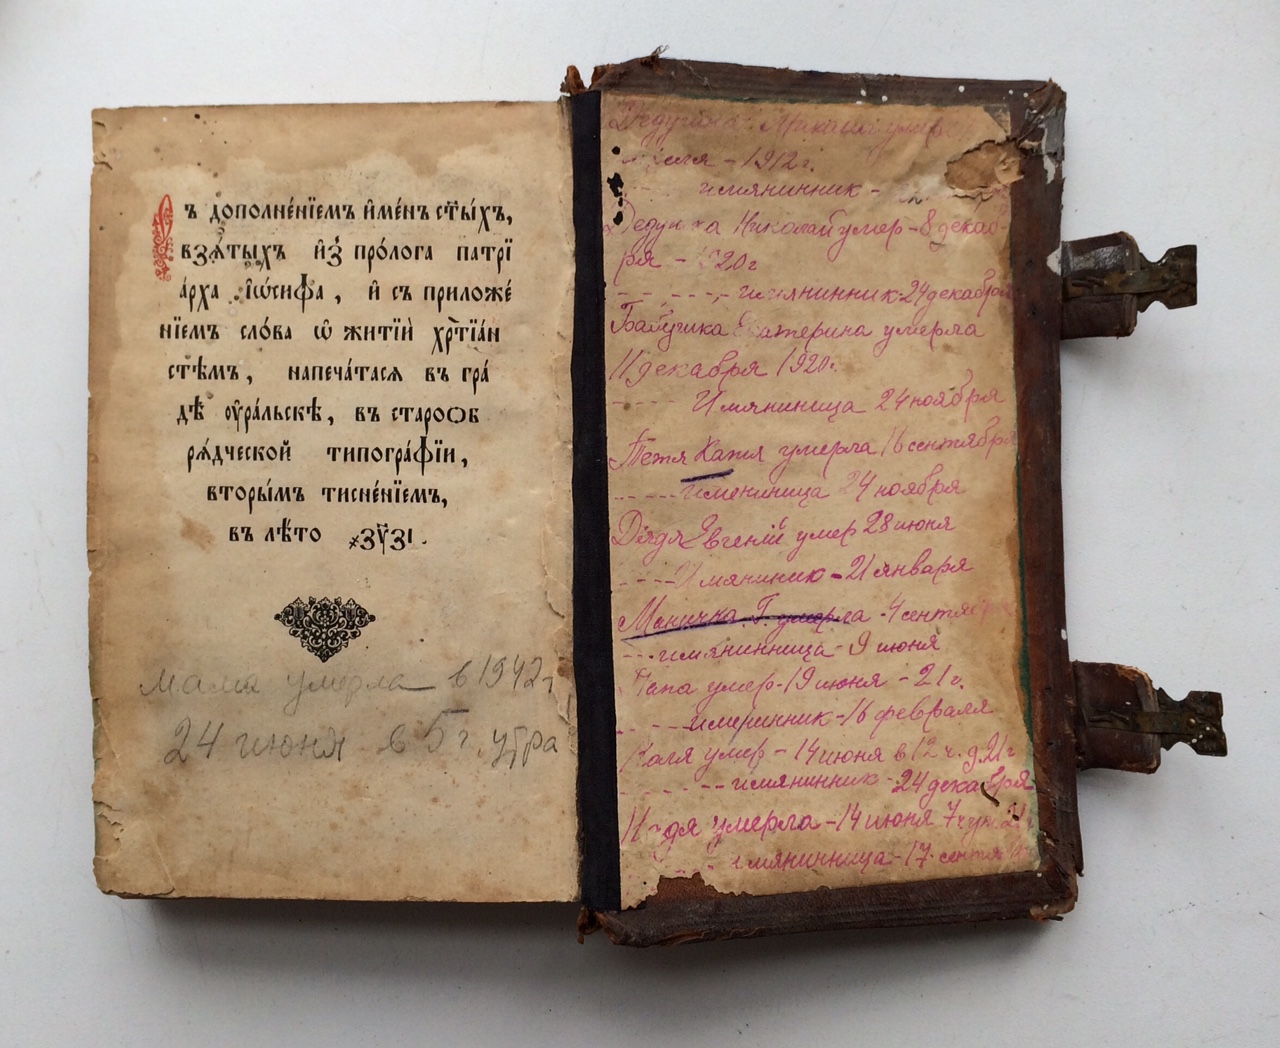 Съ дополне́нїемъ и҆ме́нъ ст҃ы́хъ,
взѧ́тыхъ и҆з̾ про́лога патрї
а́рха і҆ѡ́сифа , и҆ съ приложе́
нїемъ сло́ва ѡ҆ житїи̇ хрⷭ҇тїа́н
стѣмъ , напеча́тасѧ въ гра́
дѣ ᲂу҆ра́льскѣ , въ староѡб
рѧ́дческой типогра́фїи ,
вторы́мъ тисне́нїемъ ,
въ лѣ́то ҂зу҃зі .
мама умерла в 1942 г
24 июня в 5 г. утра
Дедушка Михаил умер
1912 г.
имянинник -
Дедушка Николай умер - 8 декаб-
ря - 1920 г
- - - - - - имянинник - 24 декабря
Бабушка Екатерина умерла
11 декабря 1920 г.
- - - - Имяниница 24 ноября
Тетя Катя умерла 16 сентября
- - - - - имениница 24 ноября
Дядя Евгений умер 28 июня
- - - - Имяниник - 21 января
Маничка Г. умерла - 4 сентяб
- - - имянинница - 9 июня
Папа умер - 19 июня - 21 г.
- - - именинник - 16 февраля
Коля умер - 14 июня в 12 ч. д. 21 г
- - - - - - имянинник - 24 декабря
Надя умерла - 14 июня 7 ч ут. 21
- - - - имянинница - 17 сентя